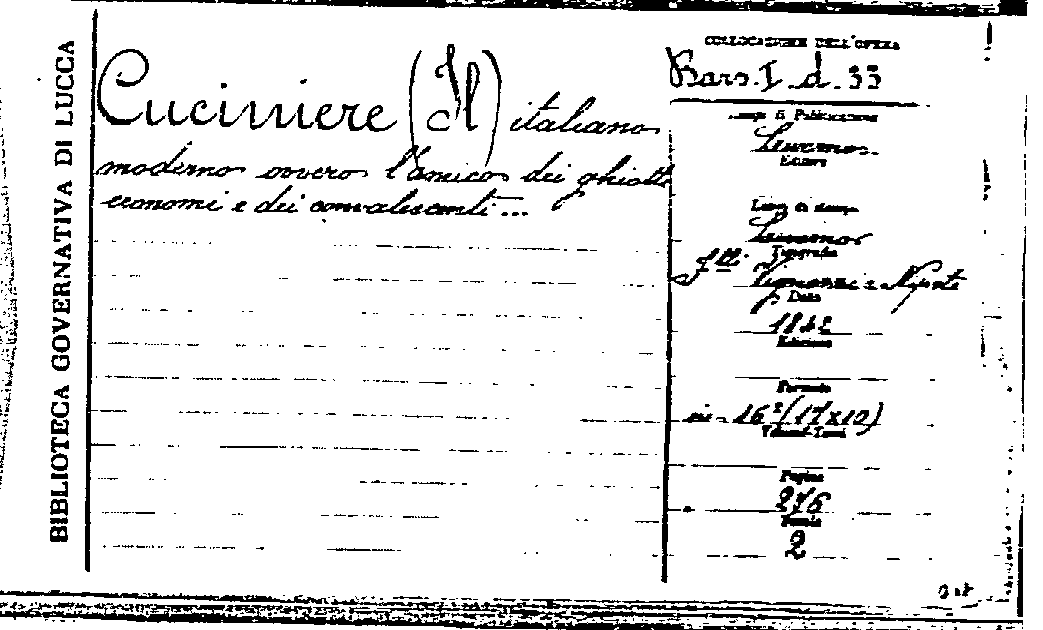 BIBLIOTECA GOVERNATIVA DI LUCCA
Cuciniere (Il) italiano
moderno ovvero l'amico dei ghiotti
economi e dei convalescenti ...
COLLOCAZIONE DELL'OPERA
Bars. I. d. 33
Luogo di Pubblicazione
Livorno
Editore
Luogo di stampa
Livorno
Tipografia
f.lli Vignozzi e Nipote
Data
1842
Edizione
Formato
in-16° (17x10)
Volumi-Tomi
Pagine
276
Tavole
2